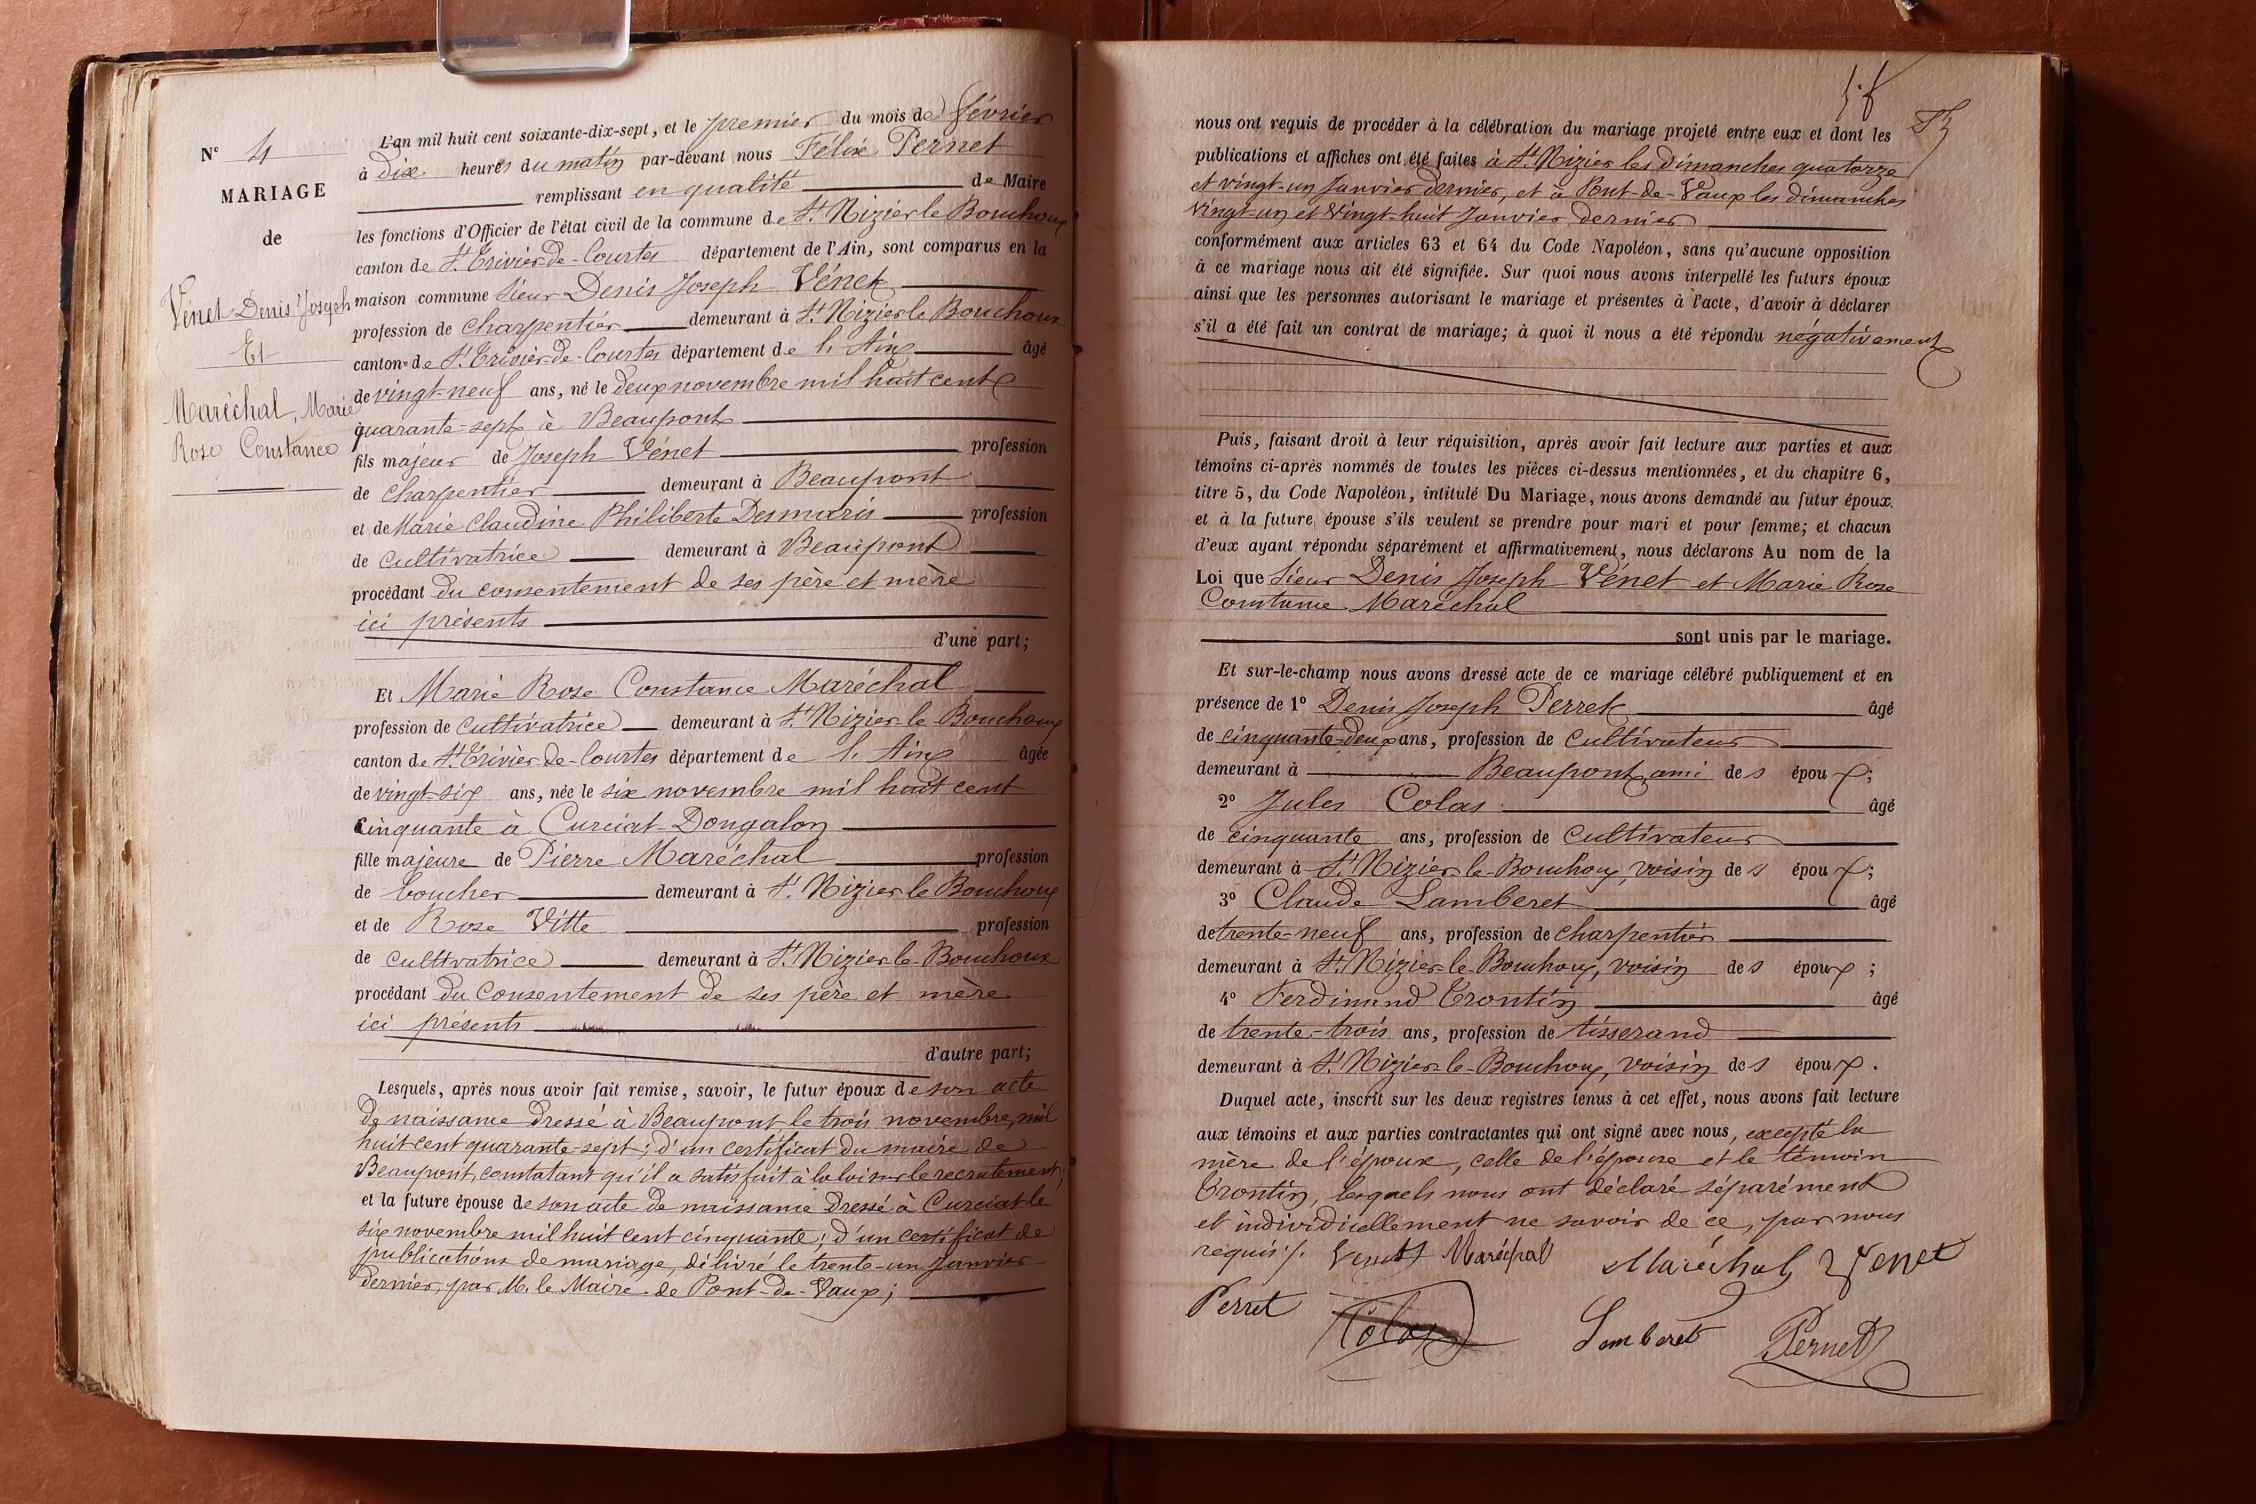 N° 4
MARIAGE
de
Vénet Denis Joseph
Et
Maréchal, Marie
Rose Constance
L'an mil huit cent soixante-dix-sept, et le premier du mois de février
à dix heures du matin par-devant nous Félix Pernet
remplissant en qualité de Maire
les fonctions d'Officier de l'état civil de la commune de St. Nizier le Bouchoux
canton de St. Trivier-de-Courtes département de l'Ain, sont comparus en la
maison commune Sieur Denis Joseph Vénet
profession de charpentier demeurant à St. Nizier le Bouchoux
canton de St. Trivier-de-Courtes département de l'Ain âgé
de vingt-neuf ans, né le deux novembre mil huit cent
quarante-sept à Beaupont
fils majeur de Joseph Vénet profession
de charpentier demeurant à Beaupont
et de Marie Claudine Philiberte Desmaris profession
de cultivatrice demeurant à Beaupont
procédant du consentement de ses père et mère
ici présents
d'une part;
Et Marie Rose Constance Maréchal
profession de cultivatrice demeurant à St. Nizier-le-Bouchoux
canton de St. Trivier-de-Courtes département de l'Ain âgée
de vingt-six ans, née le six novembre mil huit cent
cinquante à Curciat-Dongalon
fille majeure de Pierre Maréchal profession
de boucher demeurant à St. Nizier le Bouchoux
et de Rose Vitte profession
de cultivatrice demeurant à St. Nizier-le-Bouchoux
procédant du consentement de ses père et mère
ici présents
d'autre part;
Lesquels, après nous avoir fait remise, savoir, le futur époux de son acte
de naissance dressé à Beaupont, le trois novembre mil
huit cent quarante-sept; d'un certificat du maire de
Beaupont, constatant qu'il a satisfait à la loi sur le recrutement;
et la future épouse de son acte de naissance dressé à Curciat le
six novembre mil huit cent cinquante; d'un certificat de
publications de mariage, délivré le trente-un janvier
dernier, par M. le Maire de Pont-de-Vaux;
nous ont requis de procéder à la célébration du mariage projeté entre eux et dont les
publications et affiches ont été faites à St. Nizier les dimanches quatorze
et vingt-un Janvier dernier, et à Pont-de-Vaux les dimanches
vingt-un et vingt-huit Janvier dernier
conformément aux articles 63 et 64 du Code Napoléon, sans qu'aucune opposition
à ce mariage nous ait été signifiée. Sur quoi nous avons interpellé les futurs époux
ainsi que les personnes autorisant le mariage et présentes à l'acte, d'avoir à déclarer
s'il a été fait un contrat de mariage; à quoi il nous a été répondu négativement
Puis, faisant droit à leur réquisition, après avoir fait lecture aux parties et aux
témoins ci-après nommés de toutes les pièces ci-dessus mentionnées, et du chapitre 6,
titre 5, du Code Napoléon, intitulé Du Mariage, nous avons demandé au futur époux
et à la future épouse s'ils veulent se prendre pour mari et pour femme; et chacun
d'eux ayant répondu séparément et affirmativement, nous déclarons Au nom de la
Loi que Sieur Denis Joseph Vénet et Marie Rose
Constance Maréchal
sont unis par le mariage.
Et sur-le-champ nous avons dressé acte de ce mariage célébré publiquement et en
présence de 1° Denis Joseph Perret âgé
de cinquante-deux ans, profession de cultivateur
demeurant à Beaupont, ami des époux;
2° Jules Colas âgé
de cinquante ans, profession de cultivateur
demeurant à St. Nizier-le-Bouchoux, voisin des époux;
3° Claude Lamberet âgé
de trente-neuf ans, profession de charpentier
demeurant à St. Nizier-le-Bouchoux, voisin des époux;
4° Ferdinand Trontin âgé
de trente-trois ans, profession de tisserand
demeurant à St. Nizier-le-Bouchoux, voisin des époux.
Duquel acte, inscrit sur les deux registres tenus à cet effet, nous avons fait lecture
aux témoins et aux parties contractantes qui ont signé avec nous, excepté la
mère de l'époux, celle de l'épouse et le témoin
Trontin, lesquels nous ont déclaré séparément
et individuellement ne savoir de ce, par nous
requis ./. Venet Maréchal Maréchal Venet
Perret Colas Lamberet Pernet